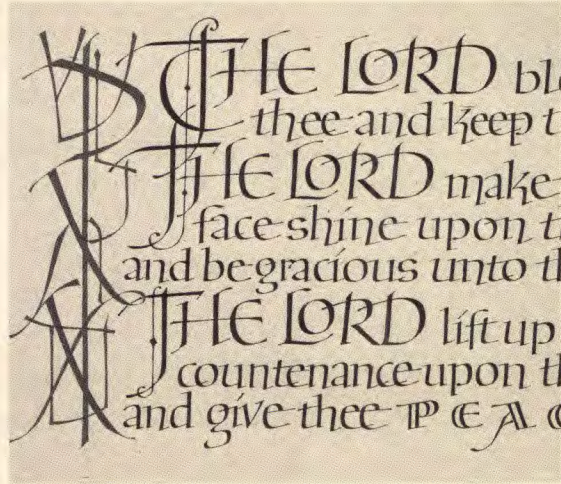 THE LORD ble
thee and keep t
THE LORD make
face shine upon t
and be gracious unto th
THE LORD lift up
countenance upon th
and give thee PEAC